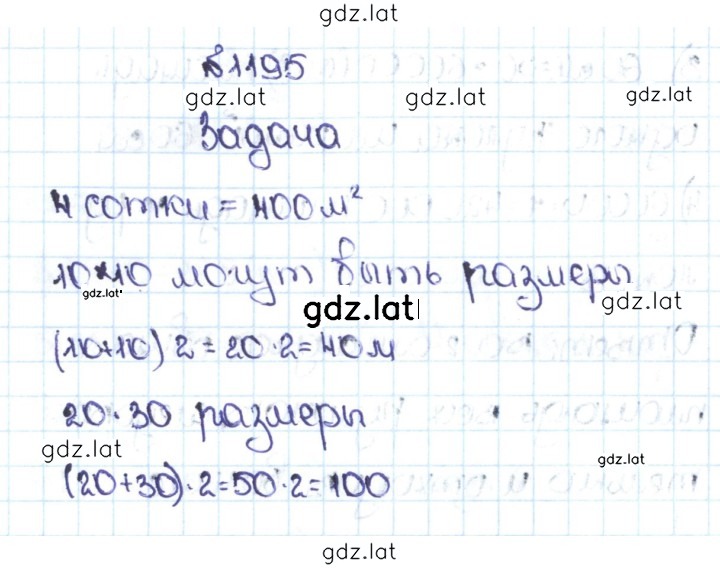 gdz.lat
№1195
gdz.lat gdz.lat gdz.lat
Задача
4 сотки = 400 м²
10·10 могут быть размеры
gdz.lat gdz.lat gdz.lat
(10+10) 2 = 20·2=40 м
20·30 размеры
gdz.lat gdz.lat
(20+30)·2=50·2=100
gdz.lat